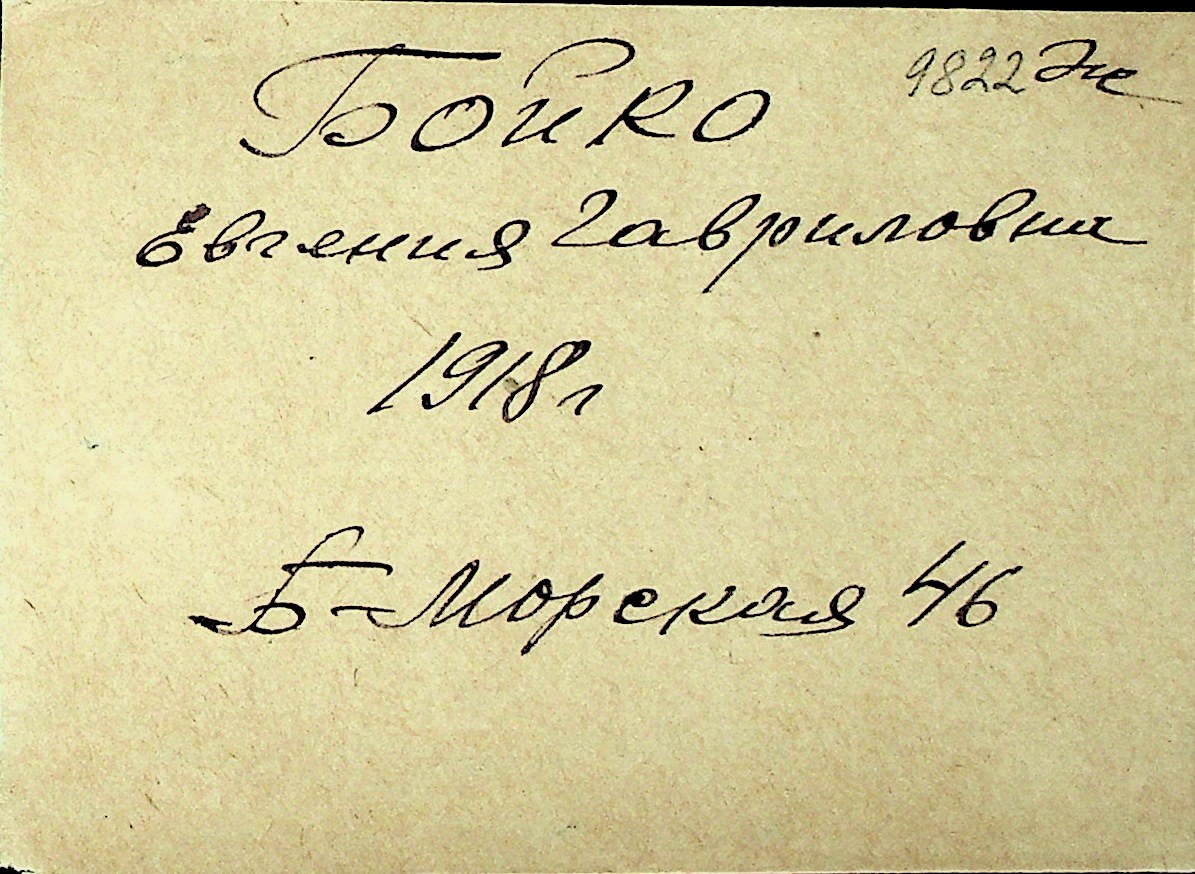 9822 Эк
Бойко
Евгения Гавриловна
1918г
Б-Морская 46